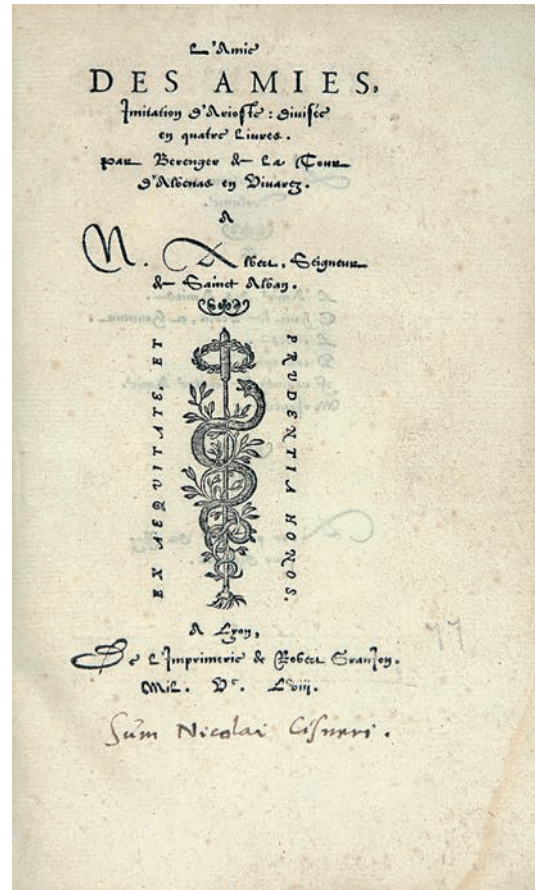 L'Amie
DES AMIES,
Imitation d'Arioste : divisée
en quatre Livres.
par Berenger de la Tour
d'Albenas en Vivarez.
A
N. Albert, Seigneur
de Sainct Alban.
EX AEQVITATE, ET
PRVDENTIA HONOS.
A Lyon,
De l'Imprimerie de Robert Granjon.
Mil. Vc. Lviii.
Sum Nicolai Cisneri.
77